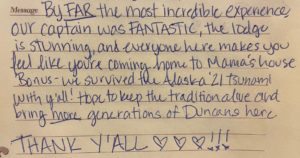 Message By FAR the most incredible experience,
our captain was FANTASTIC, the lodge
is stunning, and everyone here makes you
feel like you're coming home to Mama's house
Bonus - we survived the Alaska '21 tsunami
with y'all! Hope to keep the tradition alive and
bring more generations of Duncans here.
THANK Y'ALL ♡ ♡ ♡ !!!